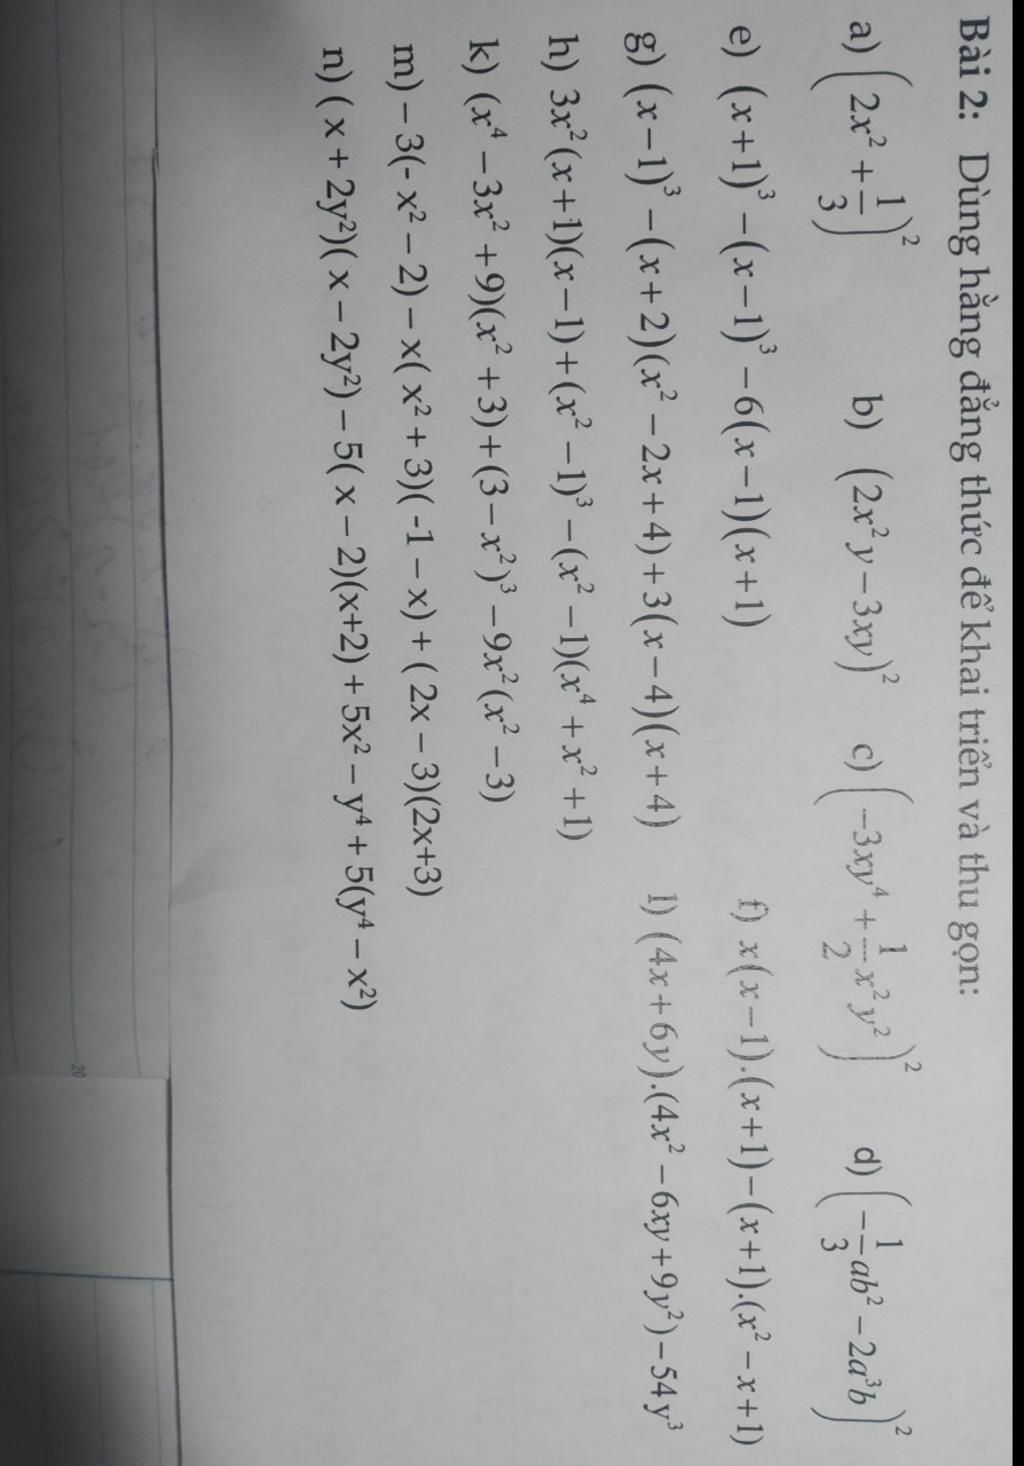 Bài 2: Dùng hằng đẳng thức để khai triển và thu gọn:
a) (2x² + 1/3)² b) (2x²y − 3xy)² c) (−3xy⁴ + 1/2 x²y²)² d) (−1/3 ab² − 2a³b)²
e) (x+1)³ − (x−1)³ − 6(x−1)(x+1) f) x(x−1).(x+1) − (x+1).(x² − x + 1)
g) (x−1)³ − (x+2)(x² − 2x + 4) + 3(x−4)(x+4) l) (4x+6y).(4x² − 6xy + 9y²) − 54y³
h) 3x²(x+1)(x−1) + (x² −1)³ − (x² −1)(x⁴ + x² +1)
k) (x⁴ − 3x² + 9)(x² + 3) + (3 − x²)³ − 9x²(x² − 3)
m) – 3(- x² – 2) – x( x² + 3)( -1 – x) + ( 2x – 3)(2x+3)
n) ( x + 2y²)( x – 2y²) – 5( x – 2)(x+2) + 5x² – y⁴ + 5(y⁴ – x²)
20